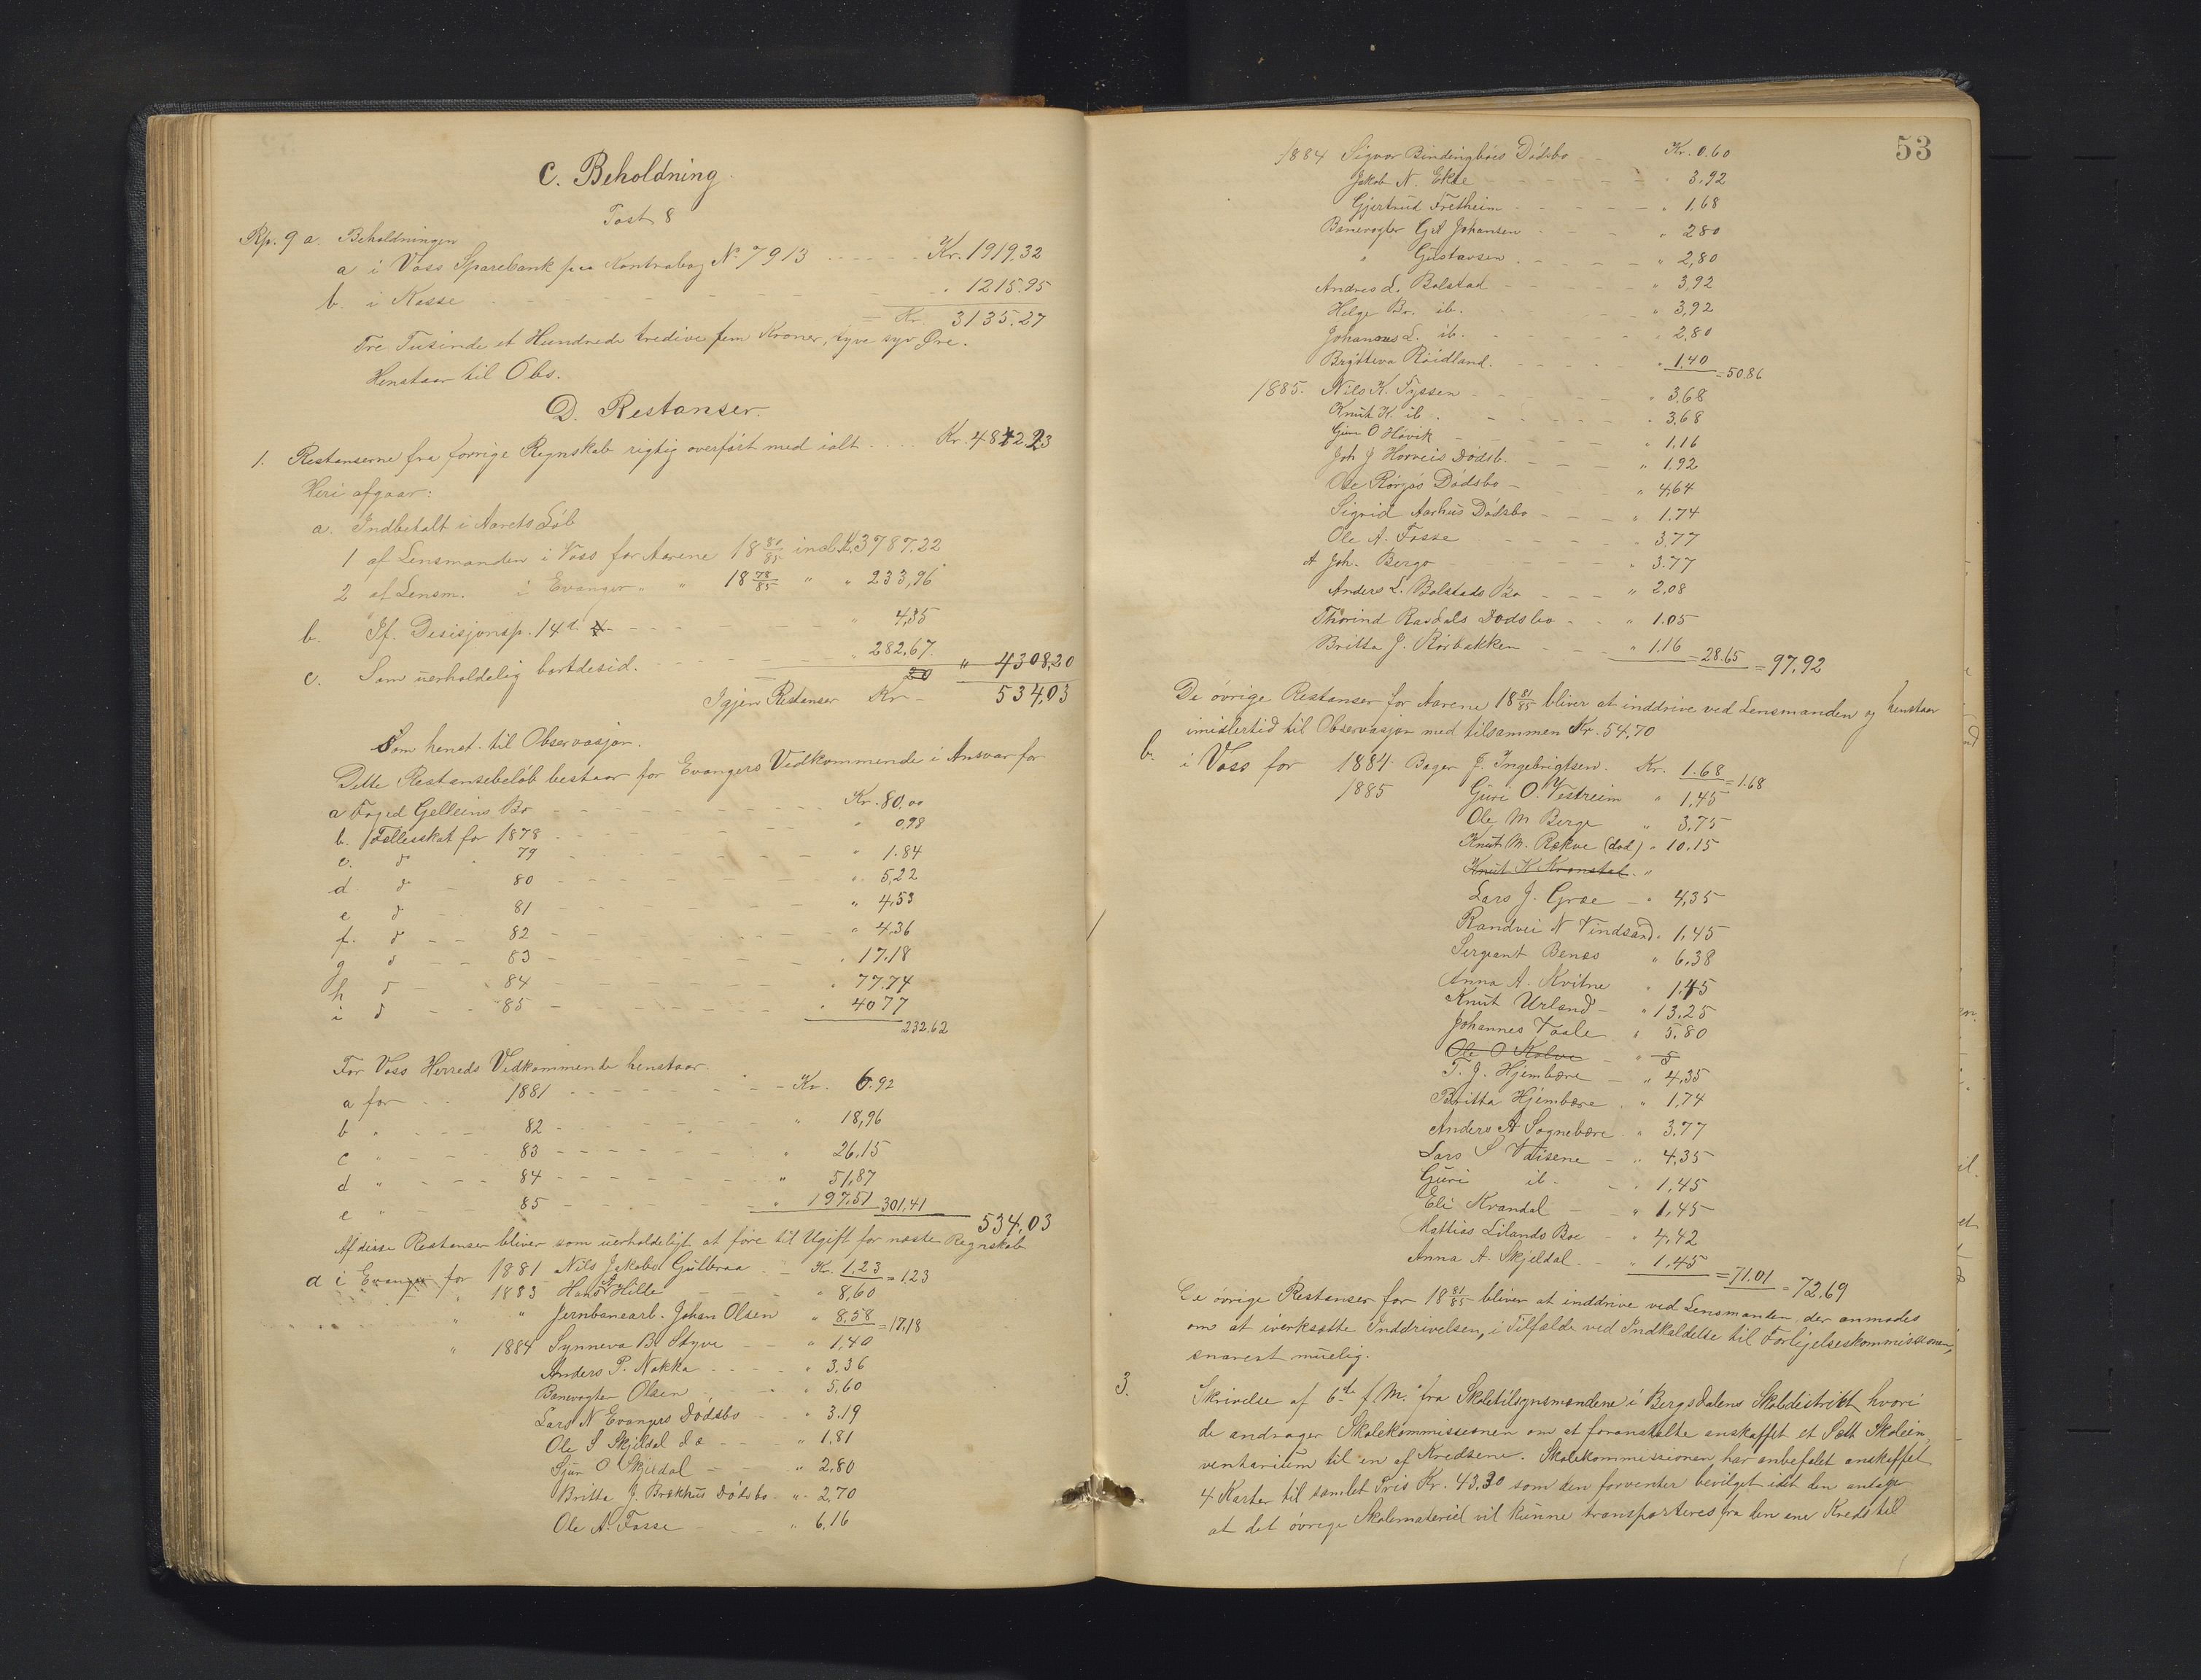 C. Beholdning.
Post 8
Rp. 9 a. Beholdningen
a i Voss Sparebank paa Kontrabog No 7913 Kr. 1919,32
b. i Kasse " 1215.95
= Kr 3135.27
Tre Tusinde et Hundrede tredive fem Kroner, tyve syv Øre.
Henstaar til Obs.
D. Restanser.
1. Restanserne fra forrige Regnskab rigtig overført med ialt Kr. 4842.23
Heri afgaar:
a. Indbetalt i Aarets Løb
1 af Lensmanden i Voss for Aarene 18 80/85 incl. 3787.22
2 af Lensm. i Evanger " " 18 78/85 " " 233,96
b. Jf. Desisjonsp. 14 " 4,35
c. Som uerholdelig bortdesid. " 282,67 " 4308,20
Igjen Restanser Kr 534,03
Som henst. til Observasjon.
Dette Restansebeløb bestaar for Evangers Vedkommende i Ansvar for
a Foged Gelleins Bo Kr. 80,00
b. Fællesskat for 1878 " 0,98
c. d 79 " 1.84
d d 80 " 5,22
e d 81 " 4,53
f. d 82 " 4,36
g d 83 " 17.18
h d 84 " 77.74
i d 85 " 4077
232.62
For Voss Herreds Vedkommende henstaar.
a for 1881 Kr. 6.92
b " 82 " 18,96
c " 83 " 26.15
d " 84 " 51,87
e " 85 " 197.51 301,41
534,03
Af disse Restanser bliver som uerholdeligt at føre til Udgift for næste Regnskab
a i Evanger for 1881 Nils Jakobs. Gulbraa Kr. 1,23 = 1,23
" 1883 Hans Hille " 8,60
" " Jernbanearb. Johan Olsen " 8,58 = 17,18
" 1884 Synneva B. Styve " 1,40
Anders P. Nakka " 3,36
Banevogter Olsen " 5,60
Lars N Evangers Dødsbo " 3.19
Ole S Skjeldal do " 1,81
Sjur O Skjeldal " 2,80
Britta J. Brækhus Dødsbo " 2,70
Ole A. Fosse " 6,16
53
1884 Sigvor Bindingbøes Dødsbo Kr. 0.60
Jakob N. Ekse " 3.92
Gjertrud Fretheim " 1,68
Banevogter G A Johansen " 280
" Gustavsen " 2,80
Andres L. Bolstad " 3,92
Helge Br. ib. " 3,92
Johannes L. ib. " 2,80
Brytteva Røidland. " 1,40 = 50.86
1885. Nils K. Tyssen " 3,68
Knut K. ib. " 3,68
Gjuri O Høvik " 1,16
Joh J Horveis Dødsb. " 1,92
Ose Rørjos Dødsbo " 4,64
Sigrid Aarhus Dødsbo " 1.74
Ole A. Fosse " 3,77
A Joh. Bergo " 3.77
Anders L. Bolstads Bo " 2.08
Thorind Rasdals Dødsbo " 1.05
Britta J. Rørbakken " 1.16 = 28.65 = 97,92
De øvrige Restanser for Aarene 18 81/85 bliver at inddrive ved Lensmanden og henstaar
imidlertid til Observasjon med tilsammen Kr. 54,70
b. i Voss for 1884 Bager J. Ingebrigtsen. Kr. 1.68 = 1.68
1885 Guri O. Vestreim " 1,45
Ole M Berge " 3,75
Knut M. Rokve (død) " 10.15
Knut K Kronstad "
Lars J. Græe " 4,35
Randvei N Vindsand " 1,45
Sergeant Benes " 6,38
Anna A. Kvitne " 1.45
Knut Urland " 13,25
Johannes Vaale " 5,80
Ole O Kolve " 5
T. J. Hjembøre " 4,35
Britta Hjembøre " 1,74
Anders A Sognebøre " 3.77
Lars S Vaisene " 4,35
Guri ib. " 1,45
Eli Krandal " 1,45
Mattias Lilands Bo " 4,42
Anna A. Skjeldal " 1,45 = 71.01 = 72.69
De øvrige Restanser for 18 81/85 bliver at inddrive ved Lensmanden, der anmodes
om at iverksætte Inddrivelsen, i Tilfælde ved Indkaldelse til Forligelseskommissionen,
snarest muelig.
3. Skrivelse af 6te f. M. fra Skoletilsynsmændene i Bergsdalens Skoledistrikt, hvori
de andrager Skolekommissionen om at foranstalte anskaffet et Sett Skolein-
ventarium til en af Kredsene. Skolekommissionen har anbefalet anskaffet
4 Karter til samlet Pris Kr. 43.30 som den forventer bevilget idet den antager
at det øvrige Skolemateriel vil kunne transporteres fra den ene Kreds til